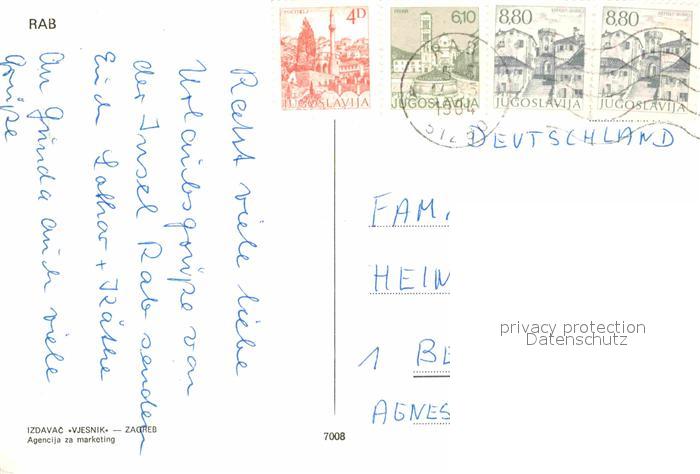 RAB
4D
6,10
8,80
8,80
JUGOSLAVIJA
JUGOSLAVIJA
JUGOSLAVIJA
JUGOSLAVIJA
1984
Recht viele liebe
Urlaubsgrüße von
der Insel Rab senden
Euch Lothar + Käthe
An Gunda auch viele
Grüße
DEUTSCHLAND
FAM.
HEIN
1 BE
AGNES
privacy protection
Datenschutz
IZDAVAČ «VJESNIK» — ZAGREB
Agencija za marketing
7008